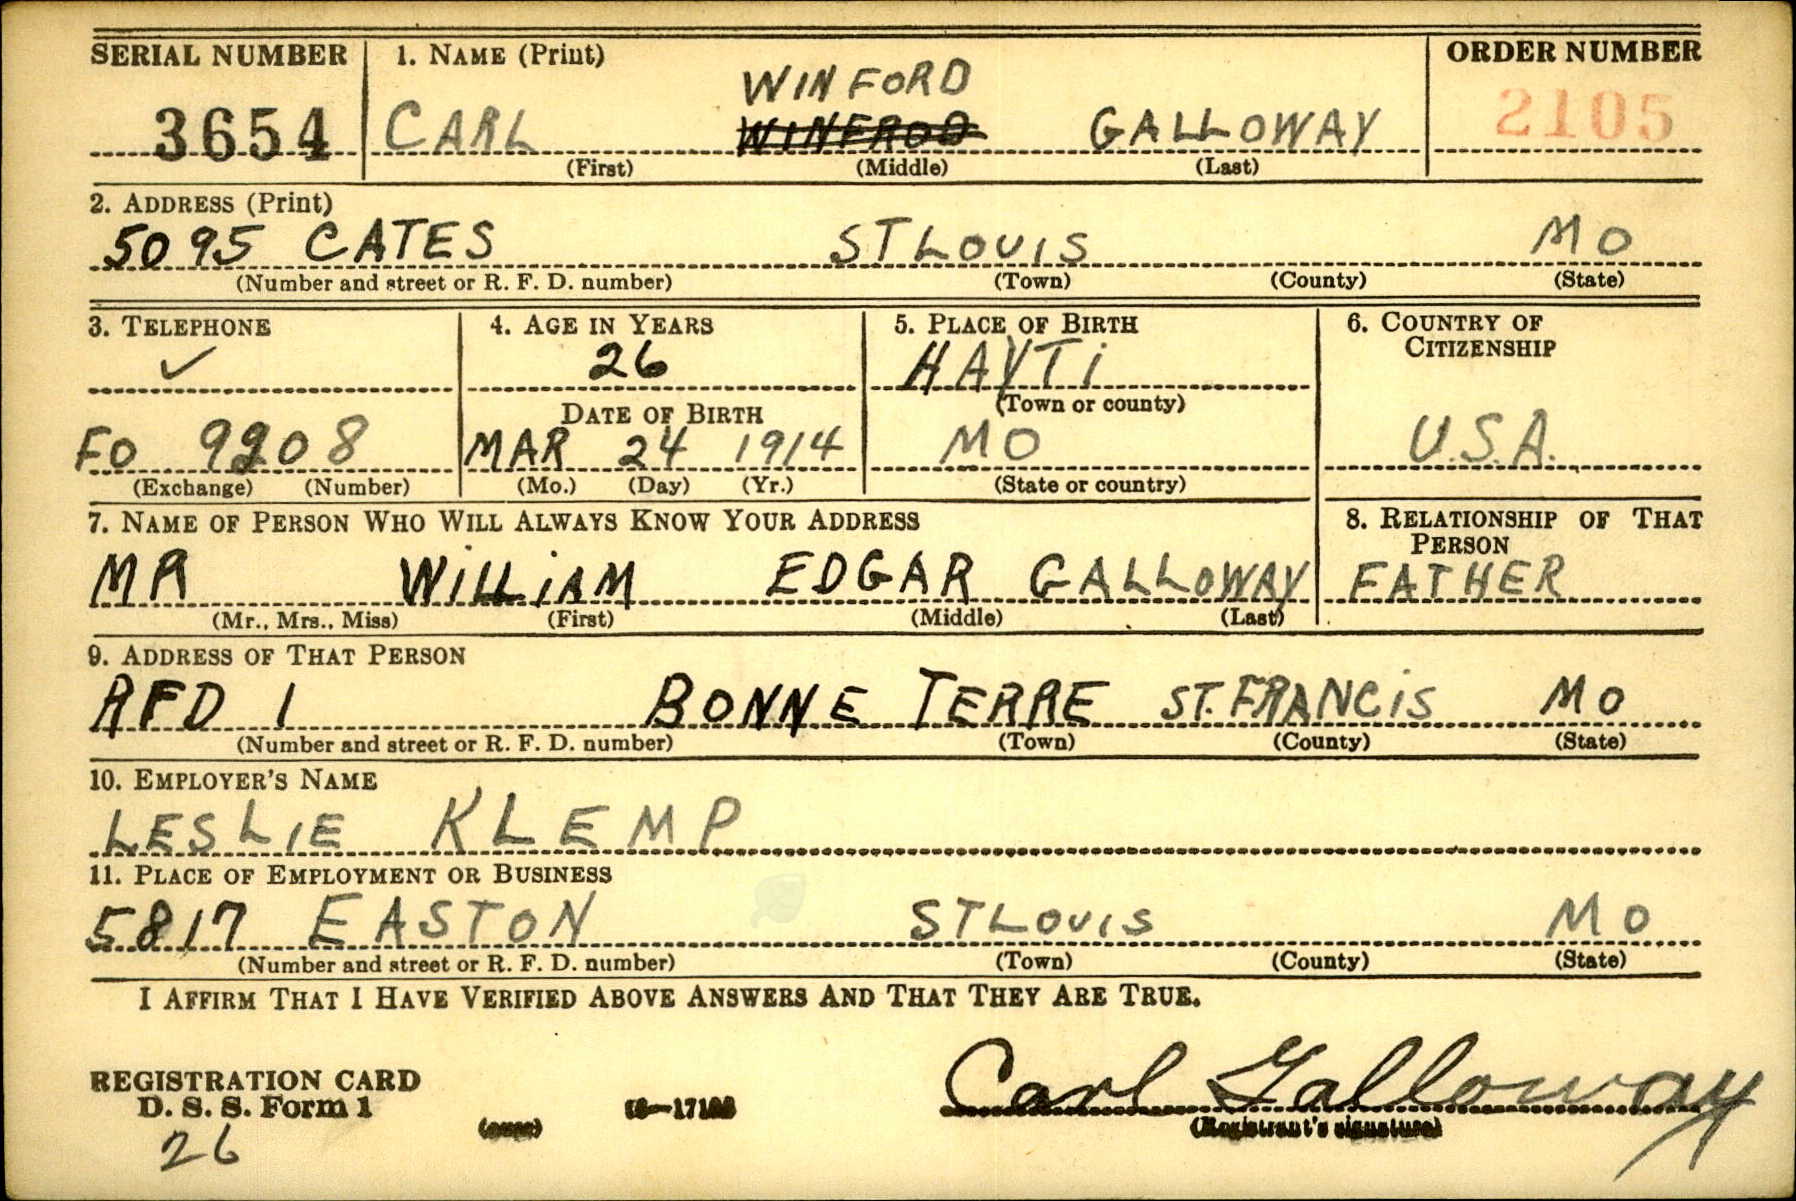 SERIAL NUMBER 1. NAME (Print) ORDER NUMBER
WINFORD
3654 CARL WINFROD GALLOWAY 2105
(First) (Middle) (Last)
2. ADDRESS (Print)
5095 CATES ST LOUIS MO
(Number and street or R. F. D. number) (Town) (County) (State)
3. TELEPHONE 4. AGE IN YEARS 5. PLACE OF BIRTH 6. COUNTRY OF CITIZENSHIP
✓ 26 HAYTI
(Town or county)
DATE OF BIRTH
FO 9208 MAR 24 1914 MO U.S.A.
(Exchange) (Number) (Mo.) (Day) (Yr.) (State or country)
7. NAME OF PERSON WHO WILL ALWAYS KNOW YOUR ADDRESS 8. RELATIONSHIP OF THAT PERSON
MR WILLIAM EDGAR GALLOWAY FATHER
(Mr., Mrs., Miss) (First) (Middle) (Last)
9. ADDRESS OF THAT PERSON
RFD 1 BONNE TERRE ST. FRANCIS MO
(Number and street or R. F. D. number) (Town) (County) (State)
10. EMPLOYER'S NAME
LESLIE KLEMP
11. PLACE OF EMPLOYMENT OR BUSINESS
5817 EASTON ST LOUIS MO
(Number and street or R. F. D. number) (Town) (County) (State)
I AFFIRM THAT I HAVE VERIFIED ABOVE ANSWERS AND THAT THEY ARE TRUE.
REGISTRATION CARD
D. S. S. Form 1 Carl Galloway
(over) (Registrant's signature)
26